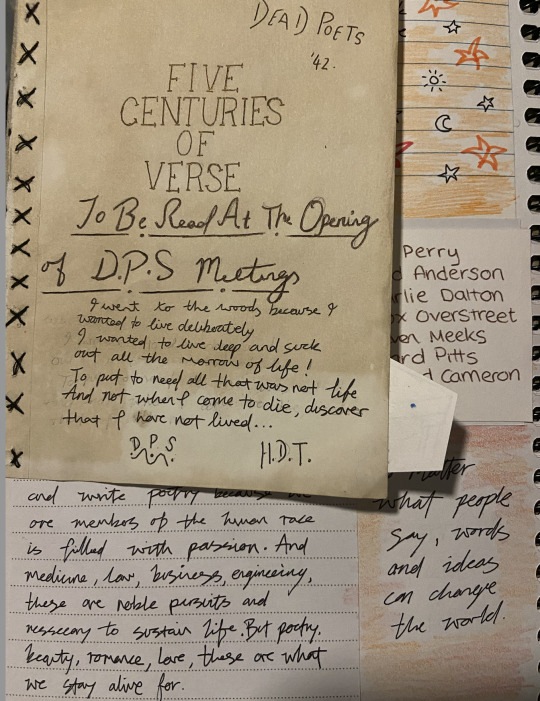 DEAD POETS
'42.
FIVE
CENTURIES
OF
VERSE
To Be Read At The Opening
of D.P.S Meetings
I went to the woods because I
wanted to live deliberately
I wanted to live deep and suck
out all the marrow of life!
To put to need all that was not life
And not when I come to die, discover
that I have not lived...
D.P.S.
H.D.T.
Perry
Anderson
rlie Dalton
ox Overstreet
ven Meeks
ard Pitts
d Cameron
and write poetry because we
are members of the human race
is filled with passion. And
medicine, law, business, engineering,
these are noble pursuits and
necessary to sustain life. But poetry,
beauty, romance, love, these are what
we stay alive for.
matter
what people
say, words
and ideas
can change
the world.